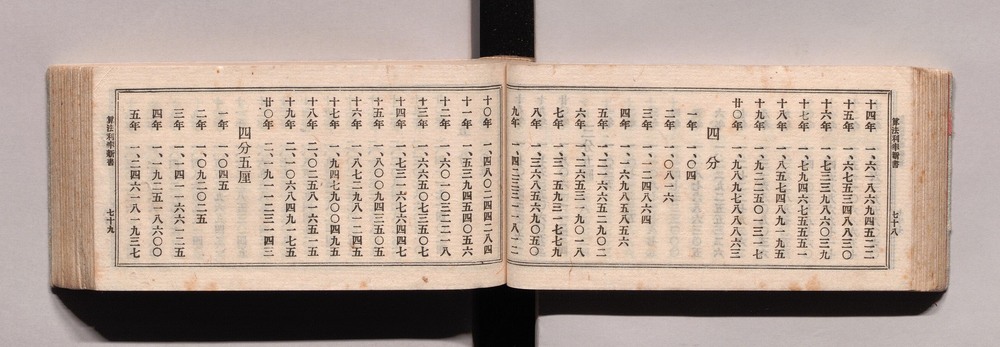 算法利率新書
七十八
十四年 一、六一八六九四五二二
十五年 一、六七五三四八八三〇
十六年 一、七三三九八六〇三九
十七年 一、七九四六七五五五一
十八年 一、八五七四八九一九五
十九年 一、九二二五〇一三一七
廿〇年 一、九八九七八八八六三
四分
一年 一、〇四
二年 一、〇八一六
三年 一、一二四八六四
四年 一、一六九八五八五六
五年 一、二一六六五二九〇二
六年 一、二六五三一九〇一八
七年 一、三一五九三一七七九
八年 一、三六八五六九〇五〇
九年 一、四二三三一一八一二
十〇年 一、四八〇二四四二八四
十一年 一、五三九四五四〇五六
十二年 一、六〇一〇三二二一八
十三年 一、六六五〇七三五〇七
十四年 一、七三一六七六四四七
十五年 一、八〇〇九四三五〇五
十六年 一、八七二九八一二四五
十七年 一、九四七九〇〇四九五
十八年 二、〇二五八一六五一五
十九年 二、一〇六八四九一七五
廿〇年 二、一九一一二三一四三
四分五厘
一年 一、〇四五
二年 一、〇九二〇二五
三年 一、一四一一六六一二五
四年 一、一九二五一八六〇〇
五年 一、二四六一八一九三七
算法利率新書
七十九